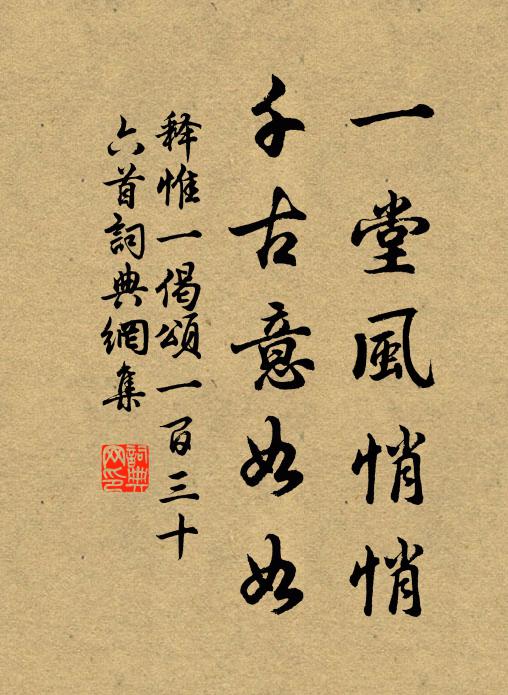 一堂風悄悄
千古意如如
释惟一偈頌一百三十
六首詞典網集
詞典
网印